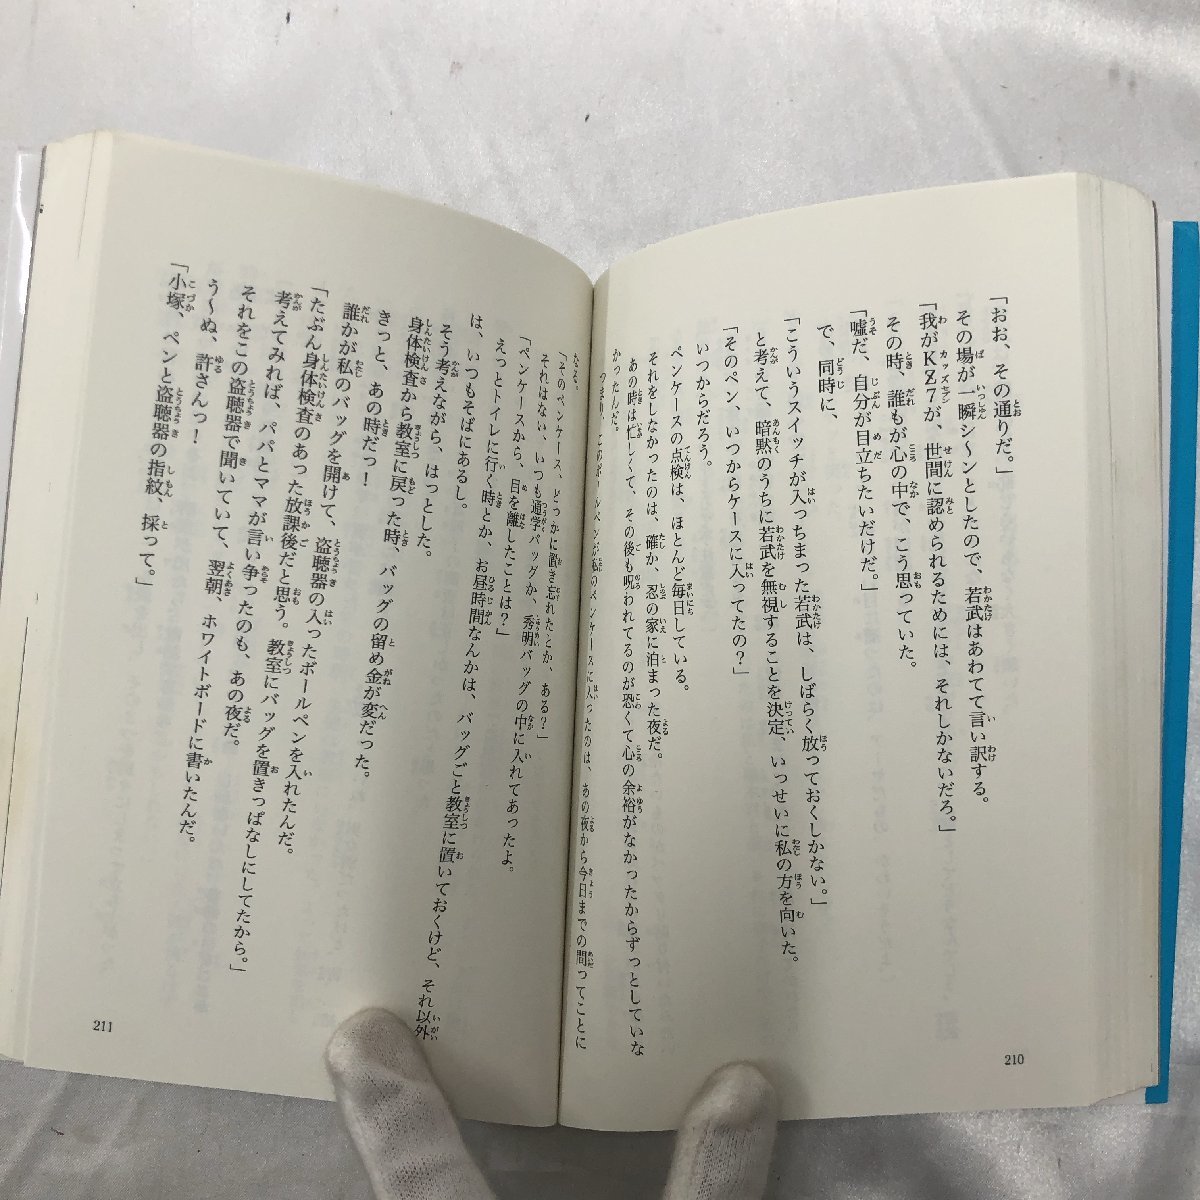 「おお、その通りだ。」
その場が一瞬シ〜ンとしたので、若武はあわてて言い訳する。
「我がKZ7が、世間に認められるためには、それしかないだろ。」
その時、誰もが心の中で、こう思っていた。
「嘘だ、自分が目立ちたいだけだ。」
で、同時に、
「こういうスイッチが入っちまった若武は、しばらく放っておくしかない。」
と考えて、暗黙のうちに若武を無視することを決定、いっせいに私の方を向いた。
「そのペン、いつからケースに入ってたの？」
いつからだろう。
ペンケースの点検は、ほとんど毎日している。
それをしなかったのは、確か、忍の家に泊まった夜だ。
あの時は忙しくて、その後も呪われてるのが恐くて心の余裕がなかったからずっとしていな
かったんだ。
つまり、このボールペンが私のペンケースに入ったのは、あの夜から今日までの間ってことに
なる。
「そのペンケース、どっかに置き忘れたとか、ある？」
それはない、いつも通学バッグか、秀明バッグの中に入れてあったよ。
「ペンケースから、目を離したことは？」
えっとトイレに行く時とか、お昼時間なんかは、バッグごと教室に置いておくけど、それ以外
は、いつもそばにあるし。
そう考えながら、はっとした。
身体検査から教室に戻った時、バッグの留め金が変だった。
きっと、あの時だっ！
誰かが私のバッグを開けて、盗聴器の入ったボールペンを入れたんだ。
「たぶん身体検査のあった放課後だと思う。教室にバッグを置きっぱなしにしてたから。」
考えてみれば、パパとママが言い争ったのも、あの夜だ。
それをこの盗聴器で聞いていて、翌朝、ホワイトボードに書いたんだ。
う〜ぬ、許さんっ！
「小塚、ペンと盗聴器の指紋、採って。」
210
211